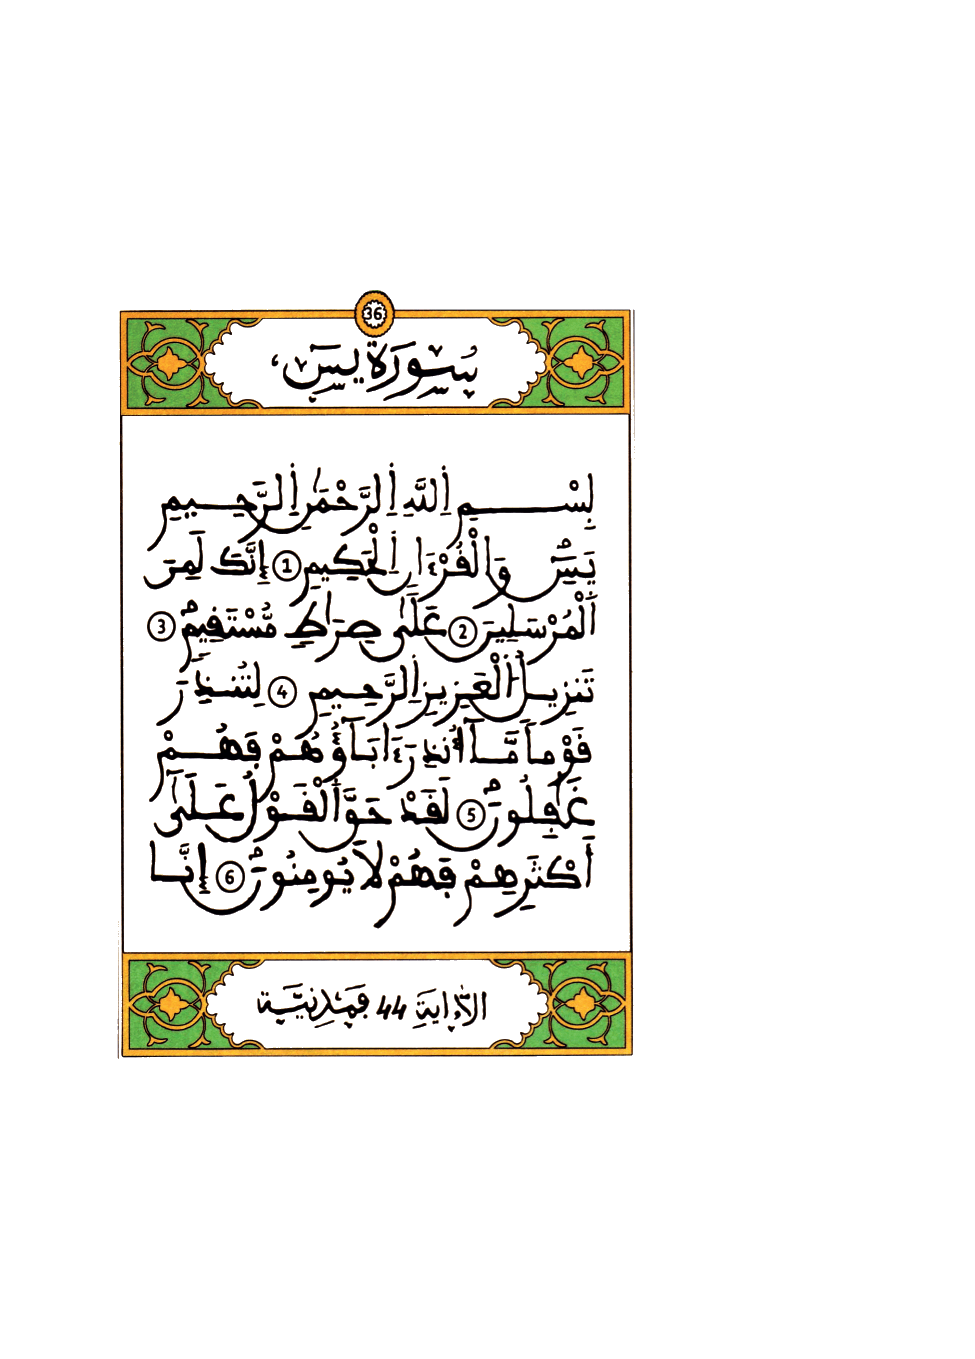 36
سُورَةُ يسٓ
بِسْمِ اِ۬للَّهِ اِ۬لرَّحْمَٰنِ اِ۬لرَّحِيمِ
يَسِٓ وَالْقُرْءَانِ اِ۬لْحَكِيمِ 1 إِنَّكَ لَمِنَ
اَ۬لْمُرْسَلِينَ 2 عَلَىٰ صِرَٰطٖ مُّسْتَقِيمٖ 3
تَنزِيلُ اُ۬لْعَزِيزِ اِ۬لرَّحِيمِ 4 لِتُنذِرَ
قَوْماٗ مَّآ أُنذِرَ ءَابَآؤُهُمْ فَهُمْ
غَٰفِلُونَ 5 لَقَدْ حَقَّ اَ۬لْقَوْلُ عَلَىٰٓ
أَكْثَرِهِمْ فَهُمْ لَا يُومِنُونَ 6 إِنَّا
الاية 44 فمدنية